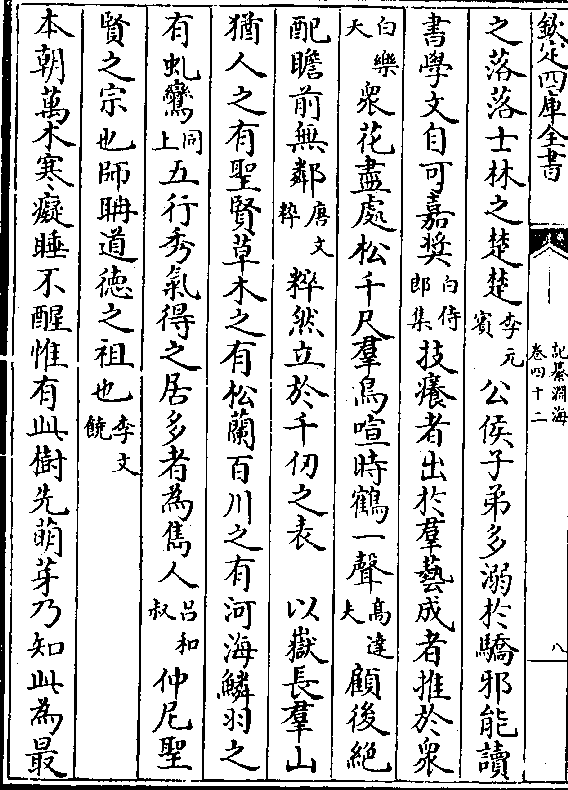 欽定四庫全書
記纂淵海
卷四十二
八
之落落士林之楚楚李元賓公侯子弟多溺於驕邪能讀
書學文自可嘉奬白侍郎集技癢者出於羣藝成者推於衆
白樂天衆花盡處松千尺羣鳥喧時鶴一聲高逵夫顧後絶
配瞻前無鄰唐文粹粹然立於千仞之表 以嶽長羣山
猶人之有聖賢草木之有松蘭百川之有河海鱗羽之
有虬鸞同上五行秀氣得之居多者為雋人吕和叔仲尼聖
賢之宗也師聃道德之祖也李文饒
本朝萬木寒癡睡不醒惟有此樹先萌芽乃知此為最